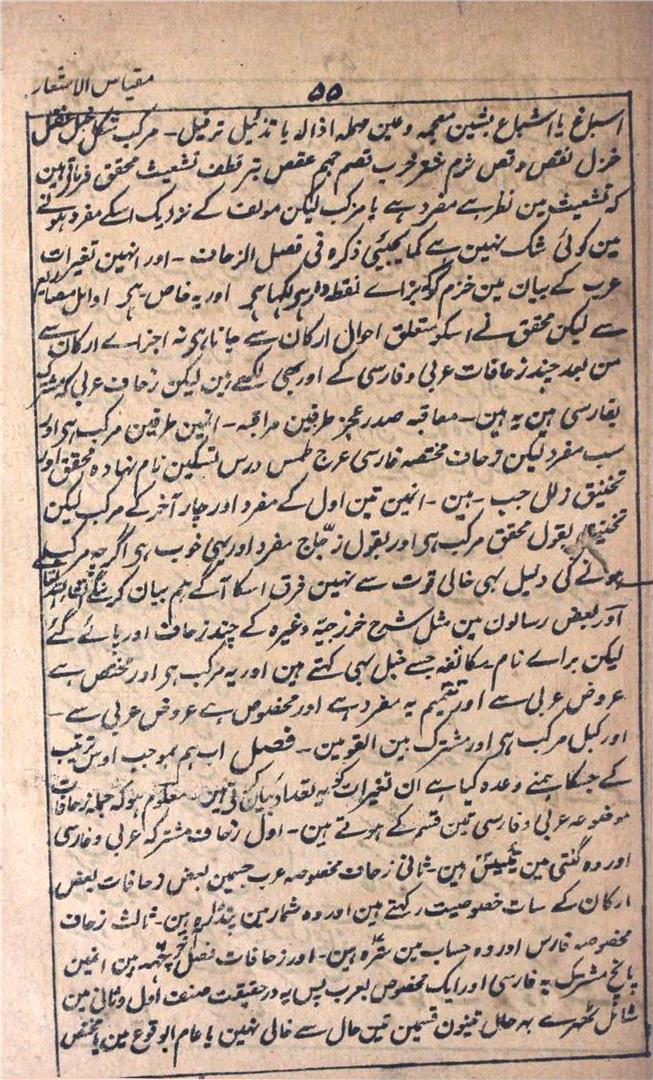 مقیاس الاشعار
۵۵
اسباغ یا اشباع بشین معجمہ و عین مہملہ اذالہ یا تذئیل ترفیل ۔ مرکب شکل خبل عقل
خزل نقص وقص ثرم شتر خرب قصم جمم عقص بتر قطف تشعیث محقق فرماتے ہین
کہ تشعیث مین نظر ہے مفرد ہے یا مرکب لیکن مولف کے نزدیک اسکے مفرد ہونے
مین کوئی شک نہین ہے کما یجیئ ذکرہ فی فصل الزحاف ۔ اور انہین تغیرات
عرب کے بیان مین خزم کو بزاے نقطہ دار بہی لکہا ہی اور یہ خاص ہی اوایل مصاریع
سے لیکن محقق نے اسکو متعلق احوال ارکان سے جانا ہی نہ اجزاے ارکان سے
من بعد چند زحافات عربی و فارسی کے اور بھی لکھے ہین لیکن زحاف عربی کہ مشترک
بفارسی ہین یہ ہین ۔ معاقبہ صدر عجز طرفین مراقبہ ۔ انہین طرفین مرکب ہی اور
سب مفرد لیکن زحاف مختصہ فارسی عرج طمس درس تسکین نام نہادہ محقق اور
تخنیق زلل جب ۔ ہین ۔ انہین تین اول کے مفرد اور چار آخر کے مرکب لیکن
تخنیق بقول محقق مرکب ہی اور بقول زجّاج مفرد اور یہی خوب ہی اگرچہ مرکب
ہونے کی دلیل بہی خالی قوت سے نہین فرق اسکا آگے ہم بیان کرینگے
اور بعض رسالون مین مثل شرح خزرجیہ وغیرہ کے چند زحاف اور پائے گئے
لیکن براے نام مکانفہ جسے خبل بہی کہتے ہین اور یہ مرکب ہی اور مختص ہے
عروض عربی سے اور تقمیم یہ مفرد ہے اور مخصوص ہے عروض عربی سے ۔
اور کبل مرکب ہی اور مشترک بین القومین ۔ فصل اب ہم بموجب اوس ترتیب
کے جسکا ہمنے وعدہ کیا ہے ان تغیرات کو بہ تعداد بیان کرتے ہین ۔ معلوم ہو کہ جملہ زحافات
موضوعہ عربی و فارسی تین قسم کے ہوتے ہین ۔ اول زحاف مشترکہ عربی و فارسی
اور وہ گنتی مین ہین ۔ ثانی زحاف مخصوصہ عرب جسمین بعض زحافات بعض
ارکان کے سات خصوصیت رکہتے ہین اور وہ شمار مین پندرہ ہین ۔ ثالث زحاف
مخصوصہ فارس اور وہ حساب مین ہین ۔ اور زحافات ہین انمین
پانچ مشترک بہ فارسی اور ایک مخصوص بعرب پس یہ درحقیقت صنف اول و ثانی مین
شامل ٹھہرے بہر حال تینون قسمین تین حال سے خالی نہین یا عام الوقوع ہین یا مختص